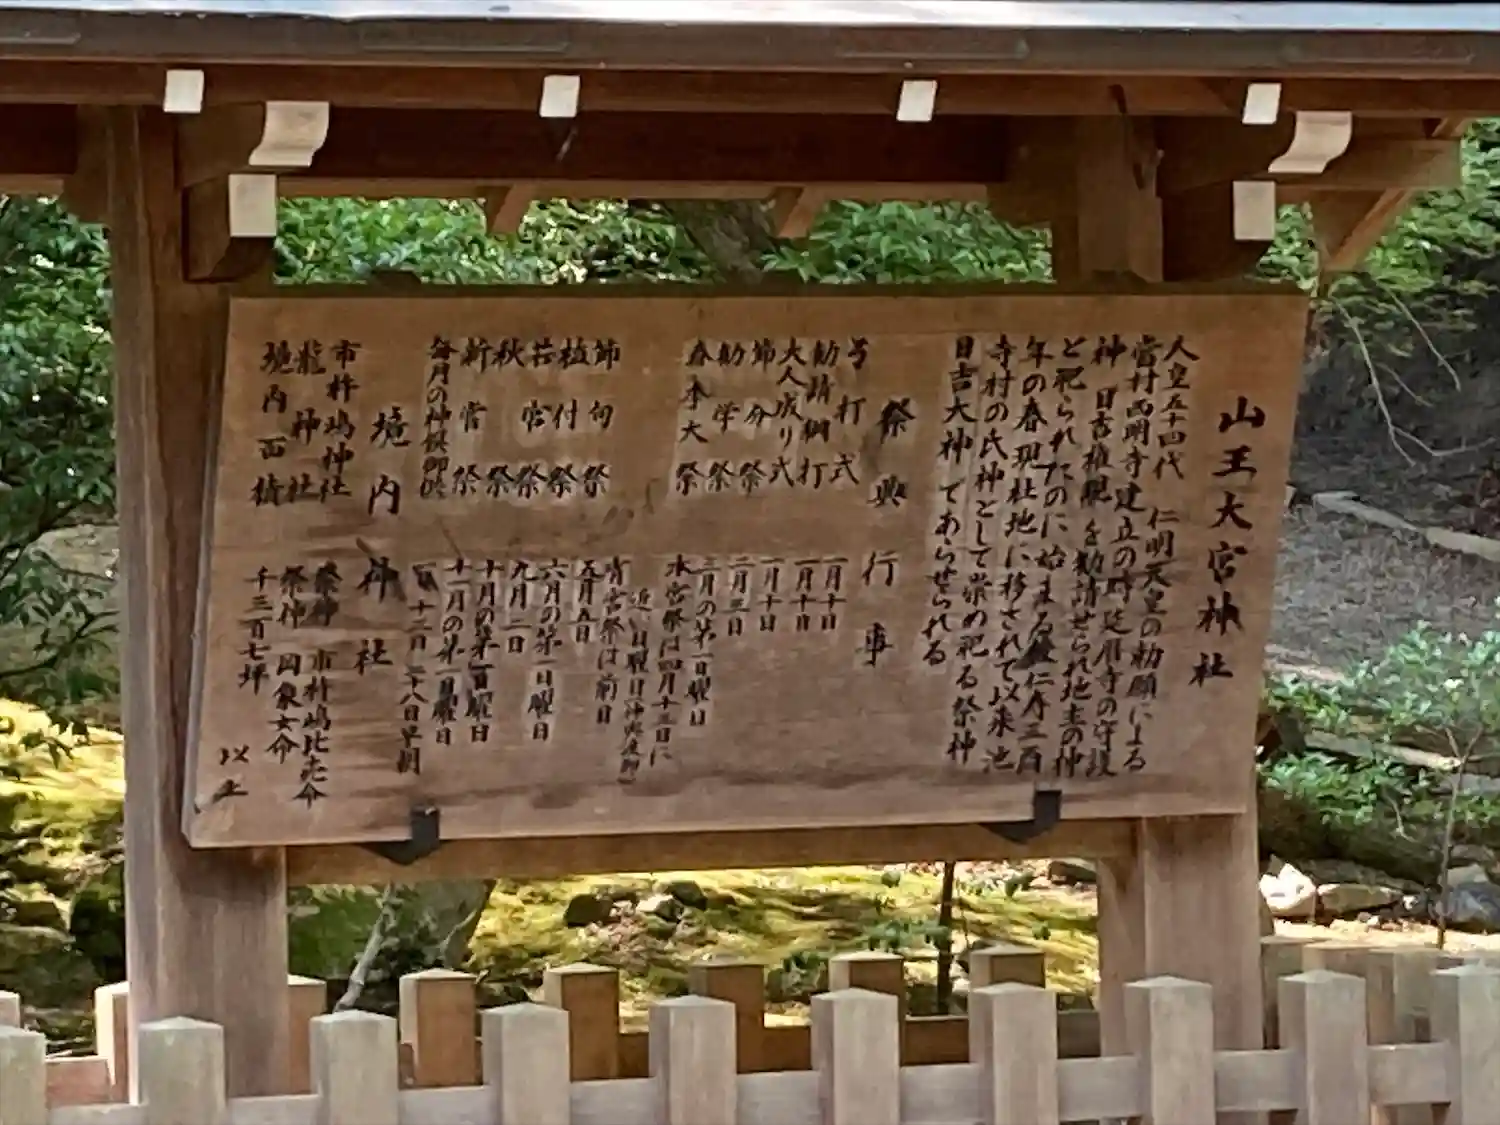 山王大宮神社
人皇五十四代 仁明天皇の勅願による
當村西明寺建立の時延暦寺の守護
神 日吉権現を勧請せられ地主の神
と祀られたのに始まる 仁寿三酉
年の春現社地に移されて以来池
寺村の氏神として崇め祀る祭神
日吉大神であらせられる
祭典行事
弓打式 一月十日
勧請網打 一月十日
大人成り式 一月十日
節分祭 二月三日
勧学祭 三月の第一日曜日
春季大祭 本宮祭は四月十三日に
近い日曜日(神輿渡御)
宵宮祭は前日
節句祭 五月五日
植付祭 六月の第一日曜日
若宮祭 九月一日
秋祭 十月の第一日曜日
新嘗祭 十一月の第一日曜日
毎月の神饌御供 一日 十二日 二十八日早朝
境内神社
市杵嶋神社 祭神 市杵嶋比売命
龍神社 祭神 岡象女命
境内面積 千三百七坪
以上